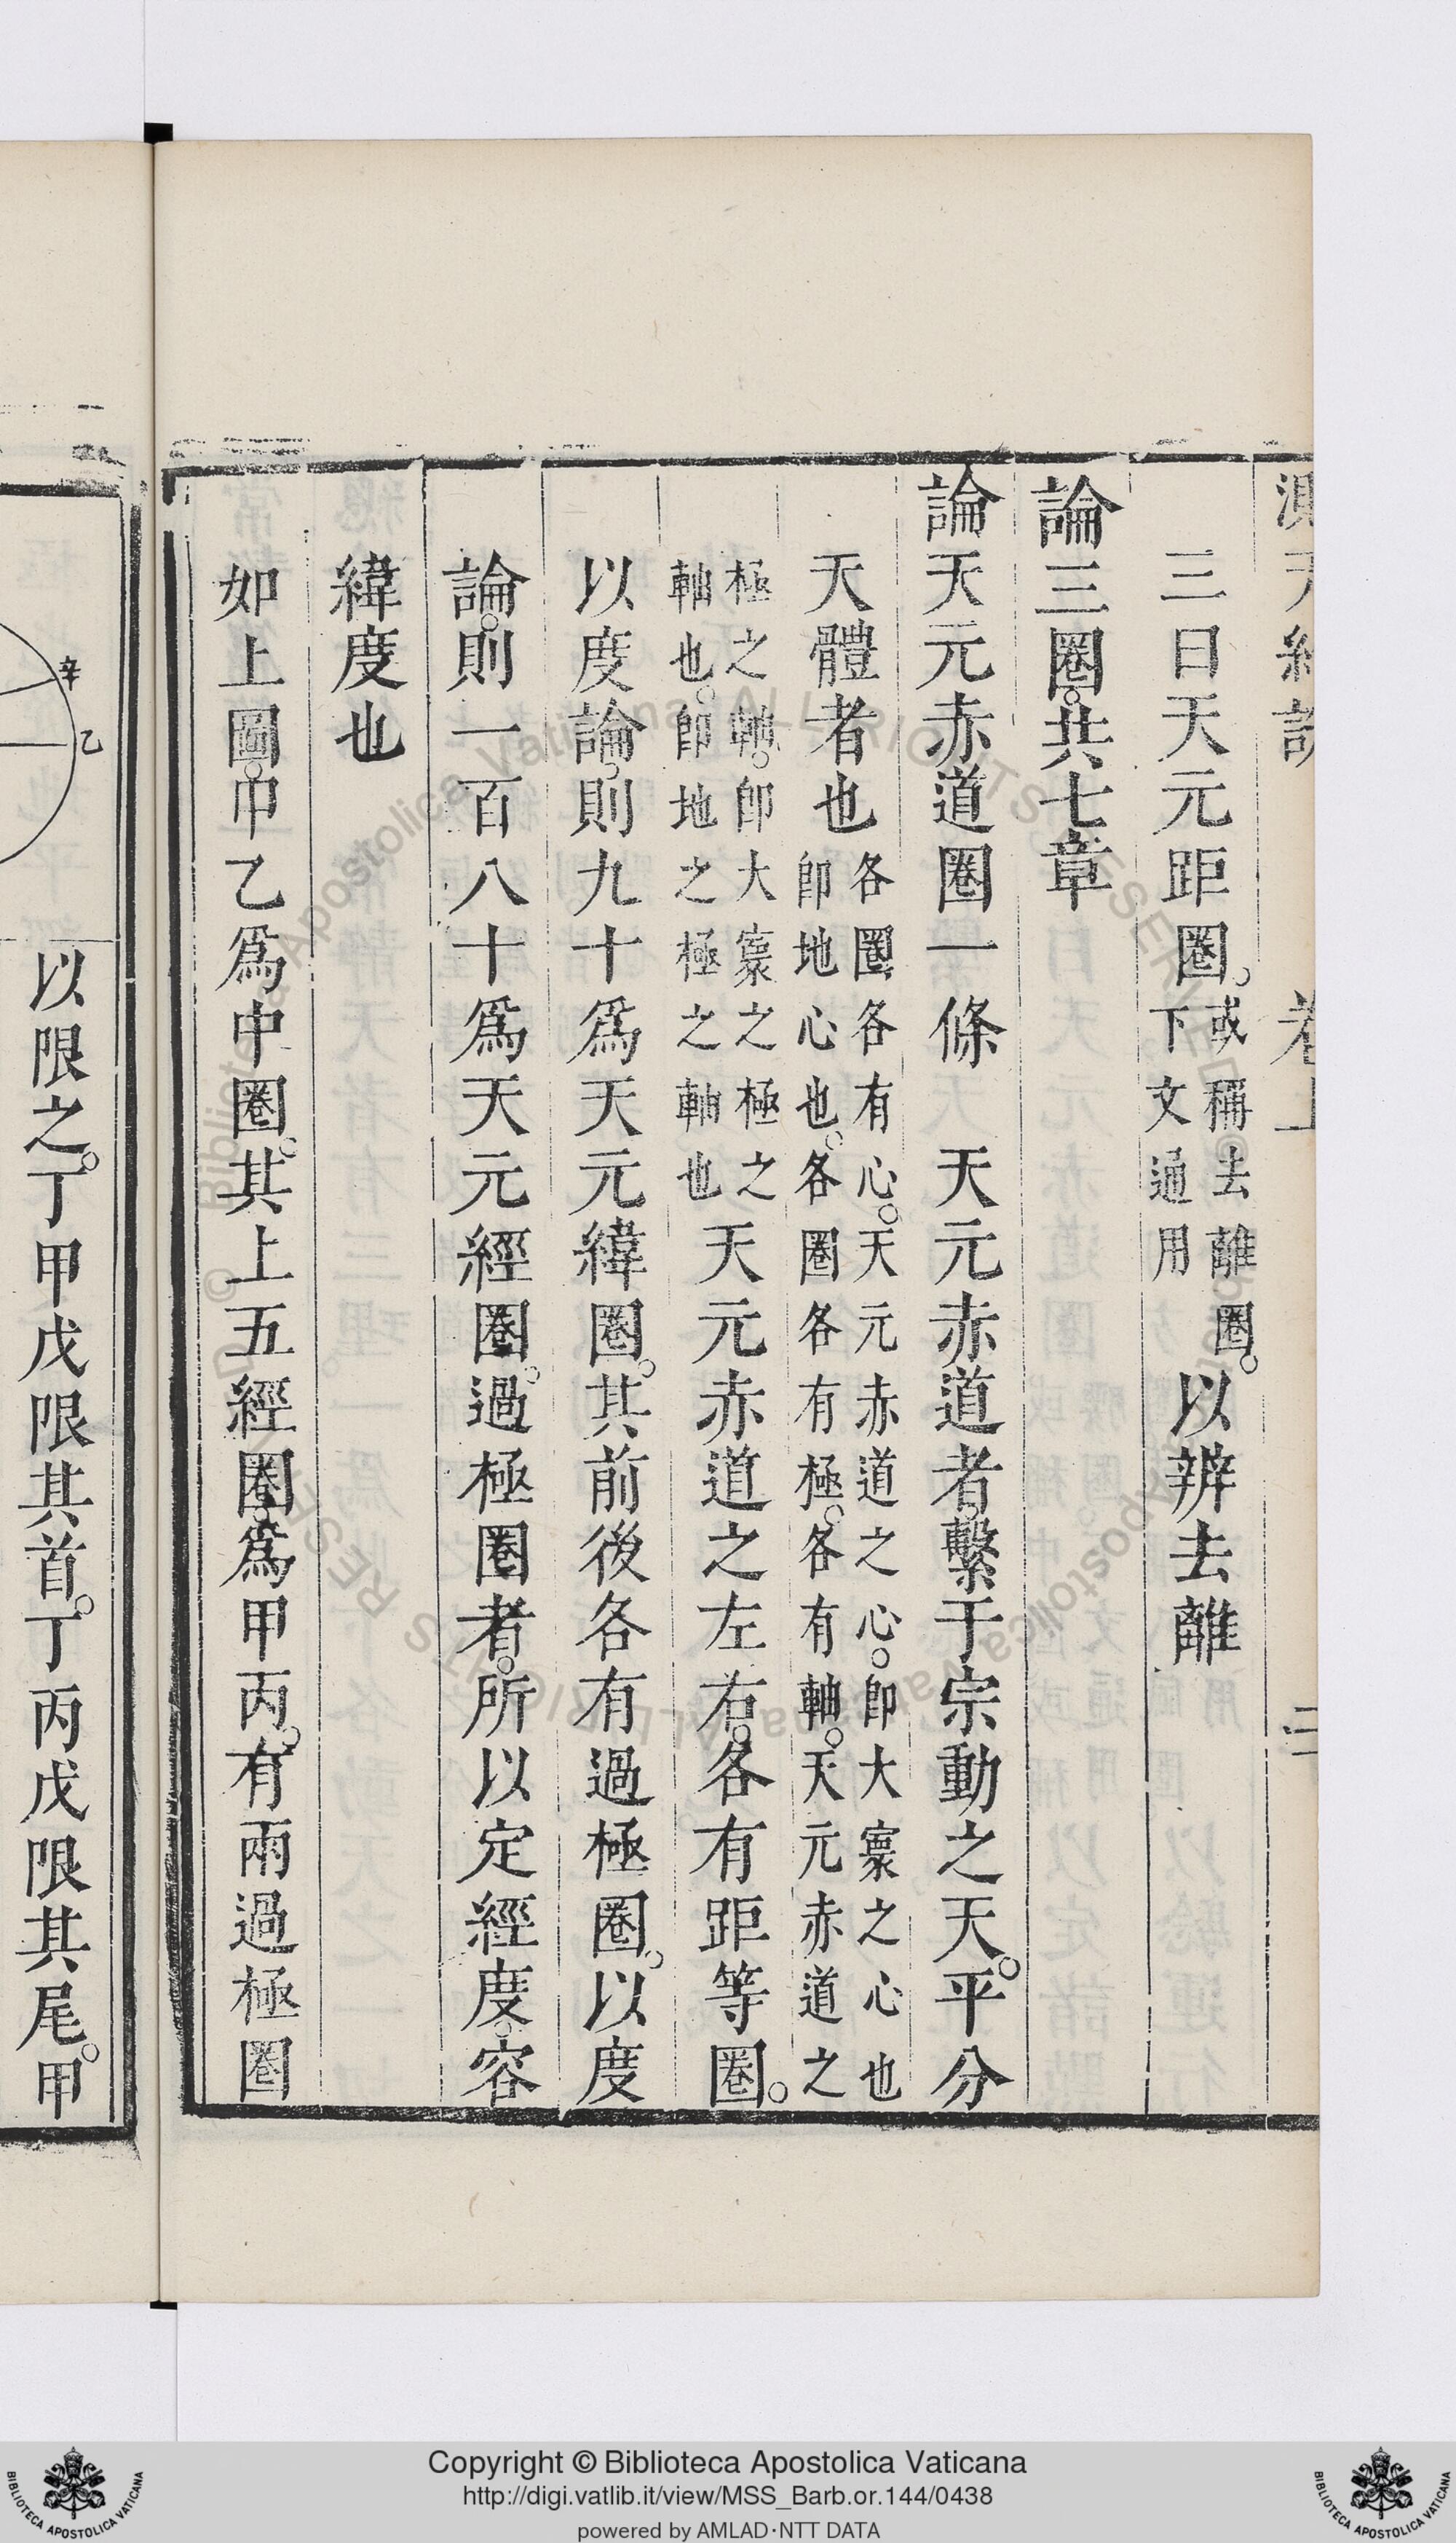 測天約說 卷上 二
三曰天元距圈。或稱去離圈。下文通用以辨去離
論三圈。共七章
論天元赤道圈一條 天元赤道者。繫于宗動之天。平分
天體者也各圈各有心。天元赤道之心。卽大寰之心也卽地心也。各圈各有極。各有軸。天元赤道之
極之軸。卽大寰之極之軸也。卽地之極之軸也天元赤道之左右。各有距等圈。
以度論。則九十爲天元緯圈。其前後各有過極圈。以度
論。則一百八十爲天元經圈。過極圈者。所以定經度。容
緯度也
如上圖。巾乙爲中圈。其上五經圈。爲甲丙。有兩過極圈
辛
乙
以限之。丁甲戊限其首。丁丙戊限其尾。甲
Copyright © Biblioteca Apostolica Vaticana
http://digi.vatlib.it/view/MSS_Barb.or.144/0438
powered by AMLAD·NTT DATA
BIBLIOTECA APOSTOLICA VATICANA
BIBLIOTECA APOSTOLICA VATICANA